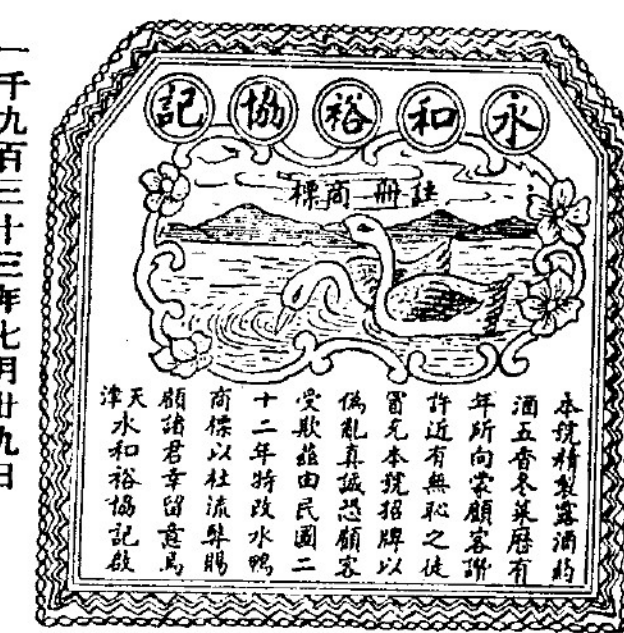 永和裕協記
註冊商標
本號精製露酒葯
酒五香冬菜歷有
年所向蒙顧客讚
許近有無恥之徒
冒充本號招牌以
偽亂真誠恐顧客
受欺茲由民國二
十二年特改水鴨
商標以杜流弊賜
顧諸君幸留意焉
天津永和裕協記啟
一千九百三十三年七月廿九日